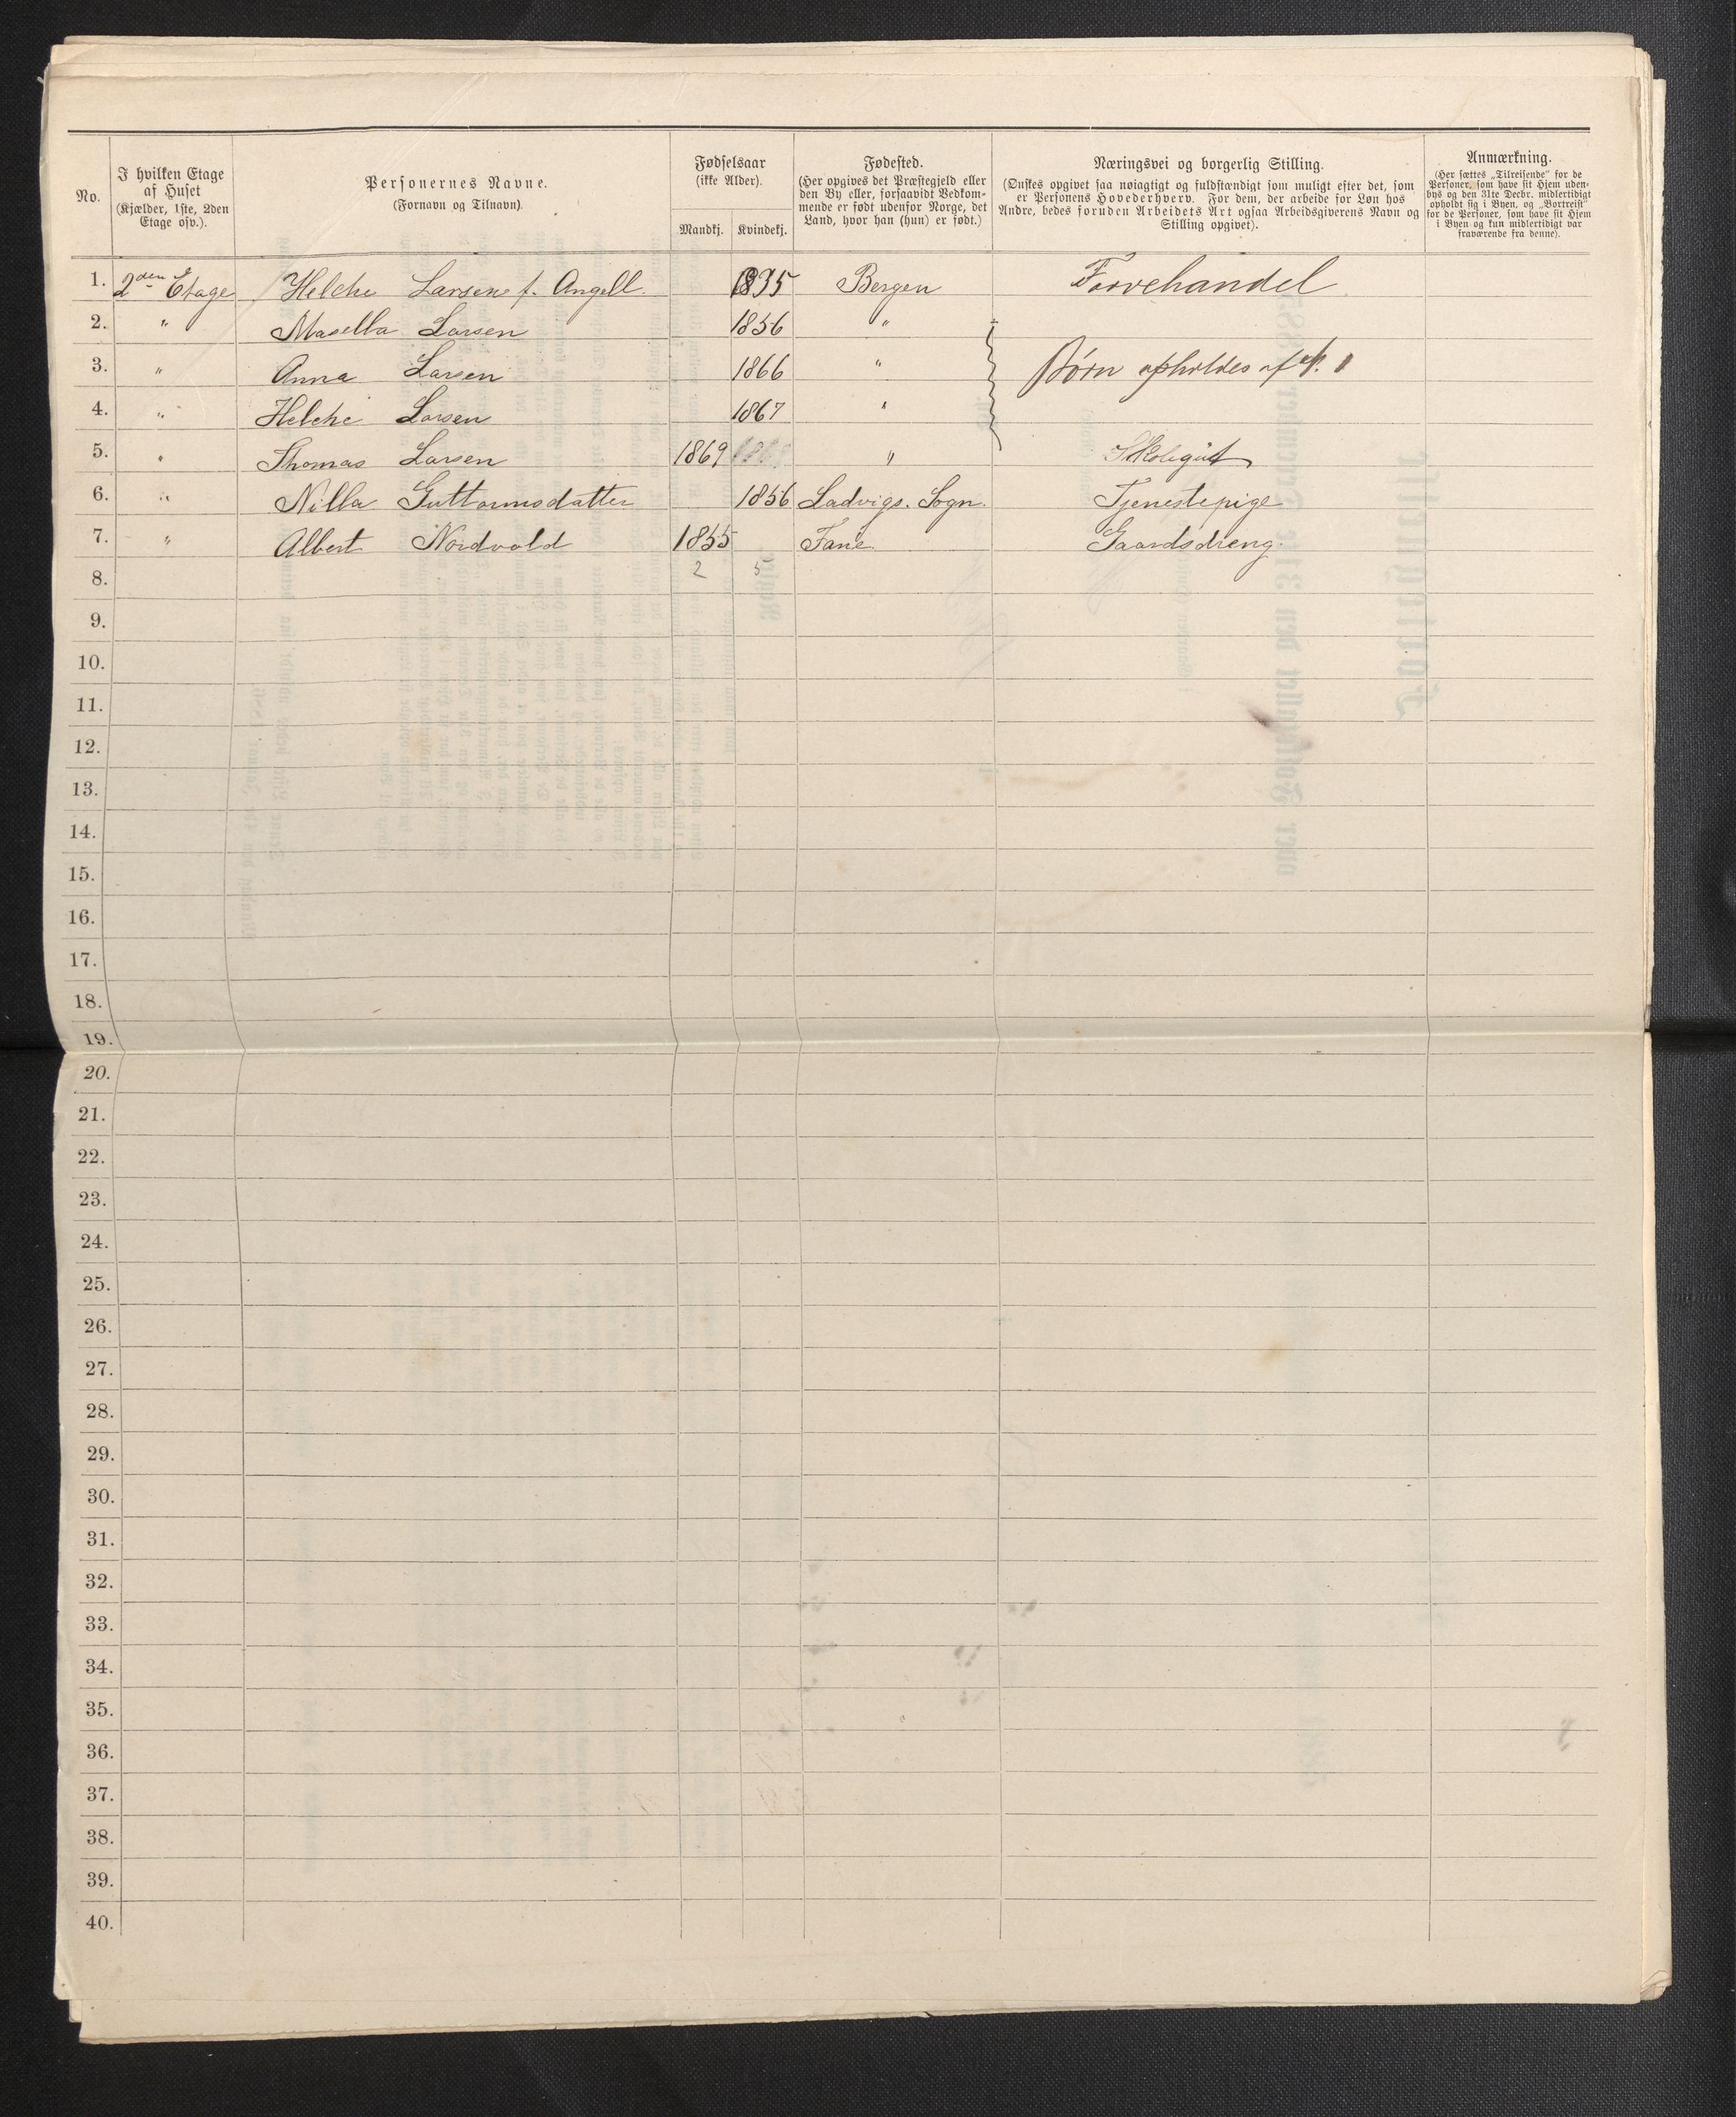 No.
I hvilken Etage
af Huset
(Kjælder, 1ste, 2den
Etage osv.).
Personernes Navne.
(Fornavn og Tilnavn).
Fødselsaar
(ikke Alder).
Mandkj. Kvindekj.
Fødested.
(Her opgives det Præstegjeld eller
den By eller, forsaavidt Vedkom-
mende er født udenfor Norge, det
Land, hvor han (hun) er født.)
Næringsvei og borgerlig Stilling.
(Ønskes opgivet saa nøiagtigt og fuldstændigt som muligt efter det, som
er Personens Hovederhverv. For dem, der arbeide for Løn hos
Andre, bedes foruden Arbeidets Art ogsaa Arbeidsgiverens Navn og
Stilling opgivet).
Anmærkning.
(Her sættes „Tilreisende" for de
Personer, som have sit Hjem uden-
bys og den 31te Decbr. midlertidigt
opholdt sig i Byen, og „Bortreist"
for de Personer, som have sit Hjem
i Byen og kun midlertidigt var
fraværende fra denne).
1. 2den Etage Helche Larsen f. Angell. 1835 Bergen Farvehandel
2. " Masella Larsen 1856 "
3. " Anna Larsen 1866 " Børn opholdes af N. 1
4. " Helche Larsen 1867 "
5. " Thomas Larsen 1869 " Skolegut
6. " Nilla Guttormsdatter 1856 Ladvigs. Sogn. Tjenestepige
7. " Albert Nordvold 1855 Fane Gaardsdreng.
8. 2 5
9.
10.
11.
12.
13.
14.
15.
16.
17.
18.
19.
20.
21.
22.
23.
24.
25.
26.
27.
28.
29.
30.
31.
32.
33.
34.
35.
36.
37.
38.
39.
40.